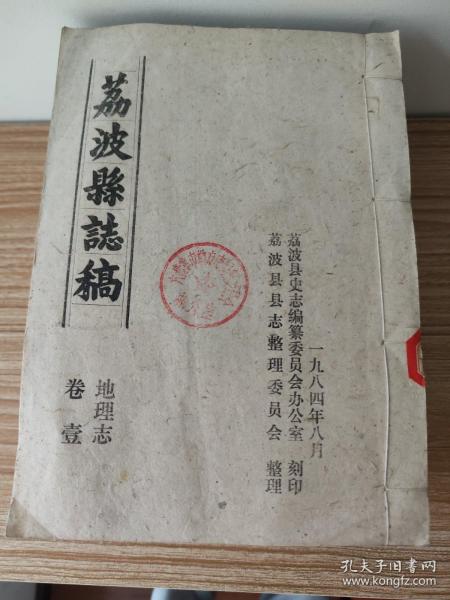 荔波縣誌稿
地理志
卷壹
一九八四年八月
荔波县史志编纂委员会办公室 刻印
荔波县县志整理委员会 整理
孔夫子旧书网
www.kongfz.com